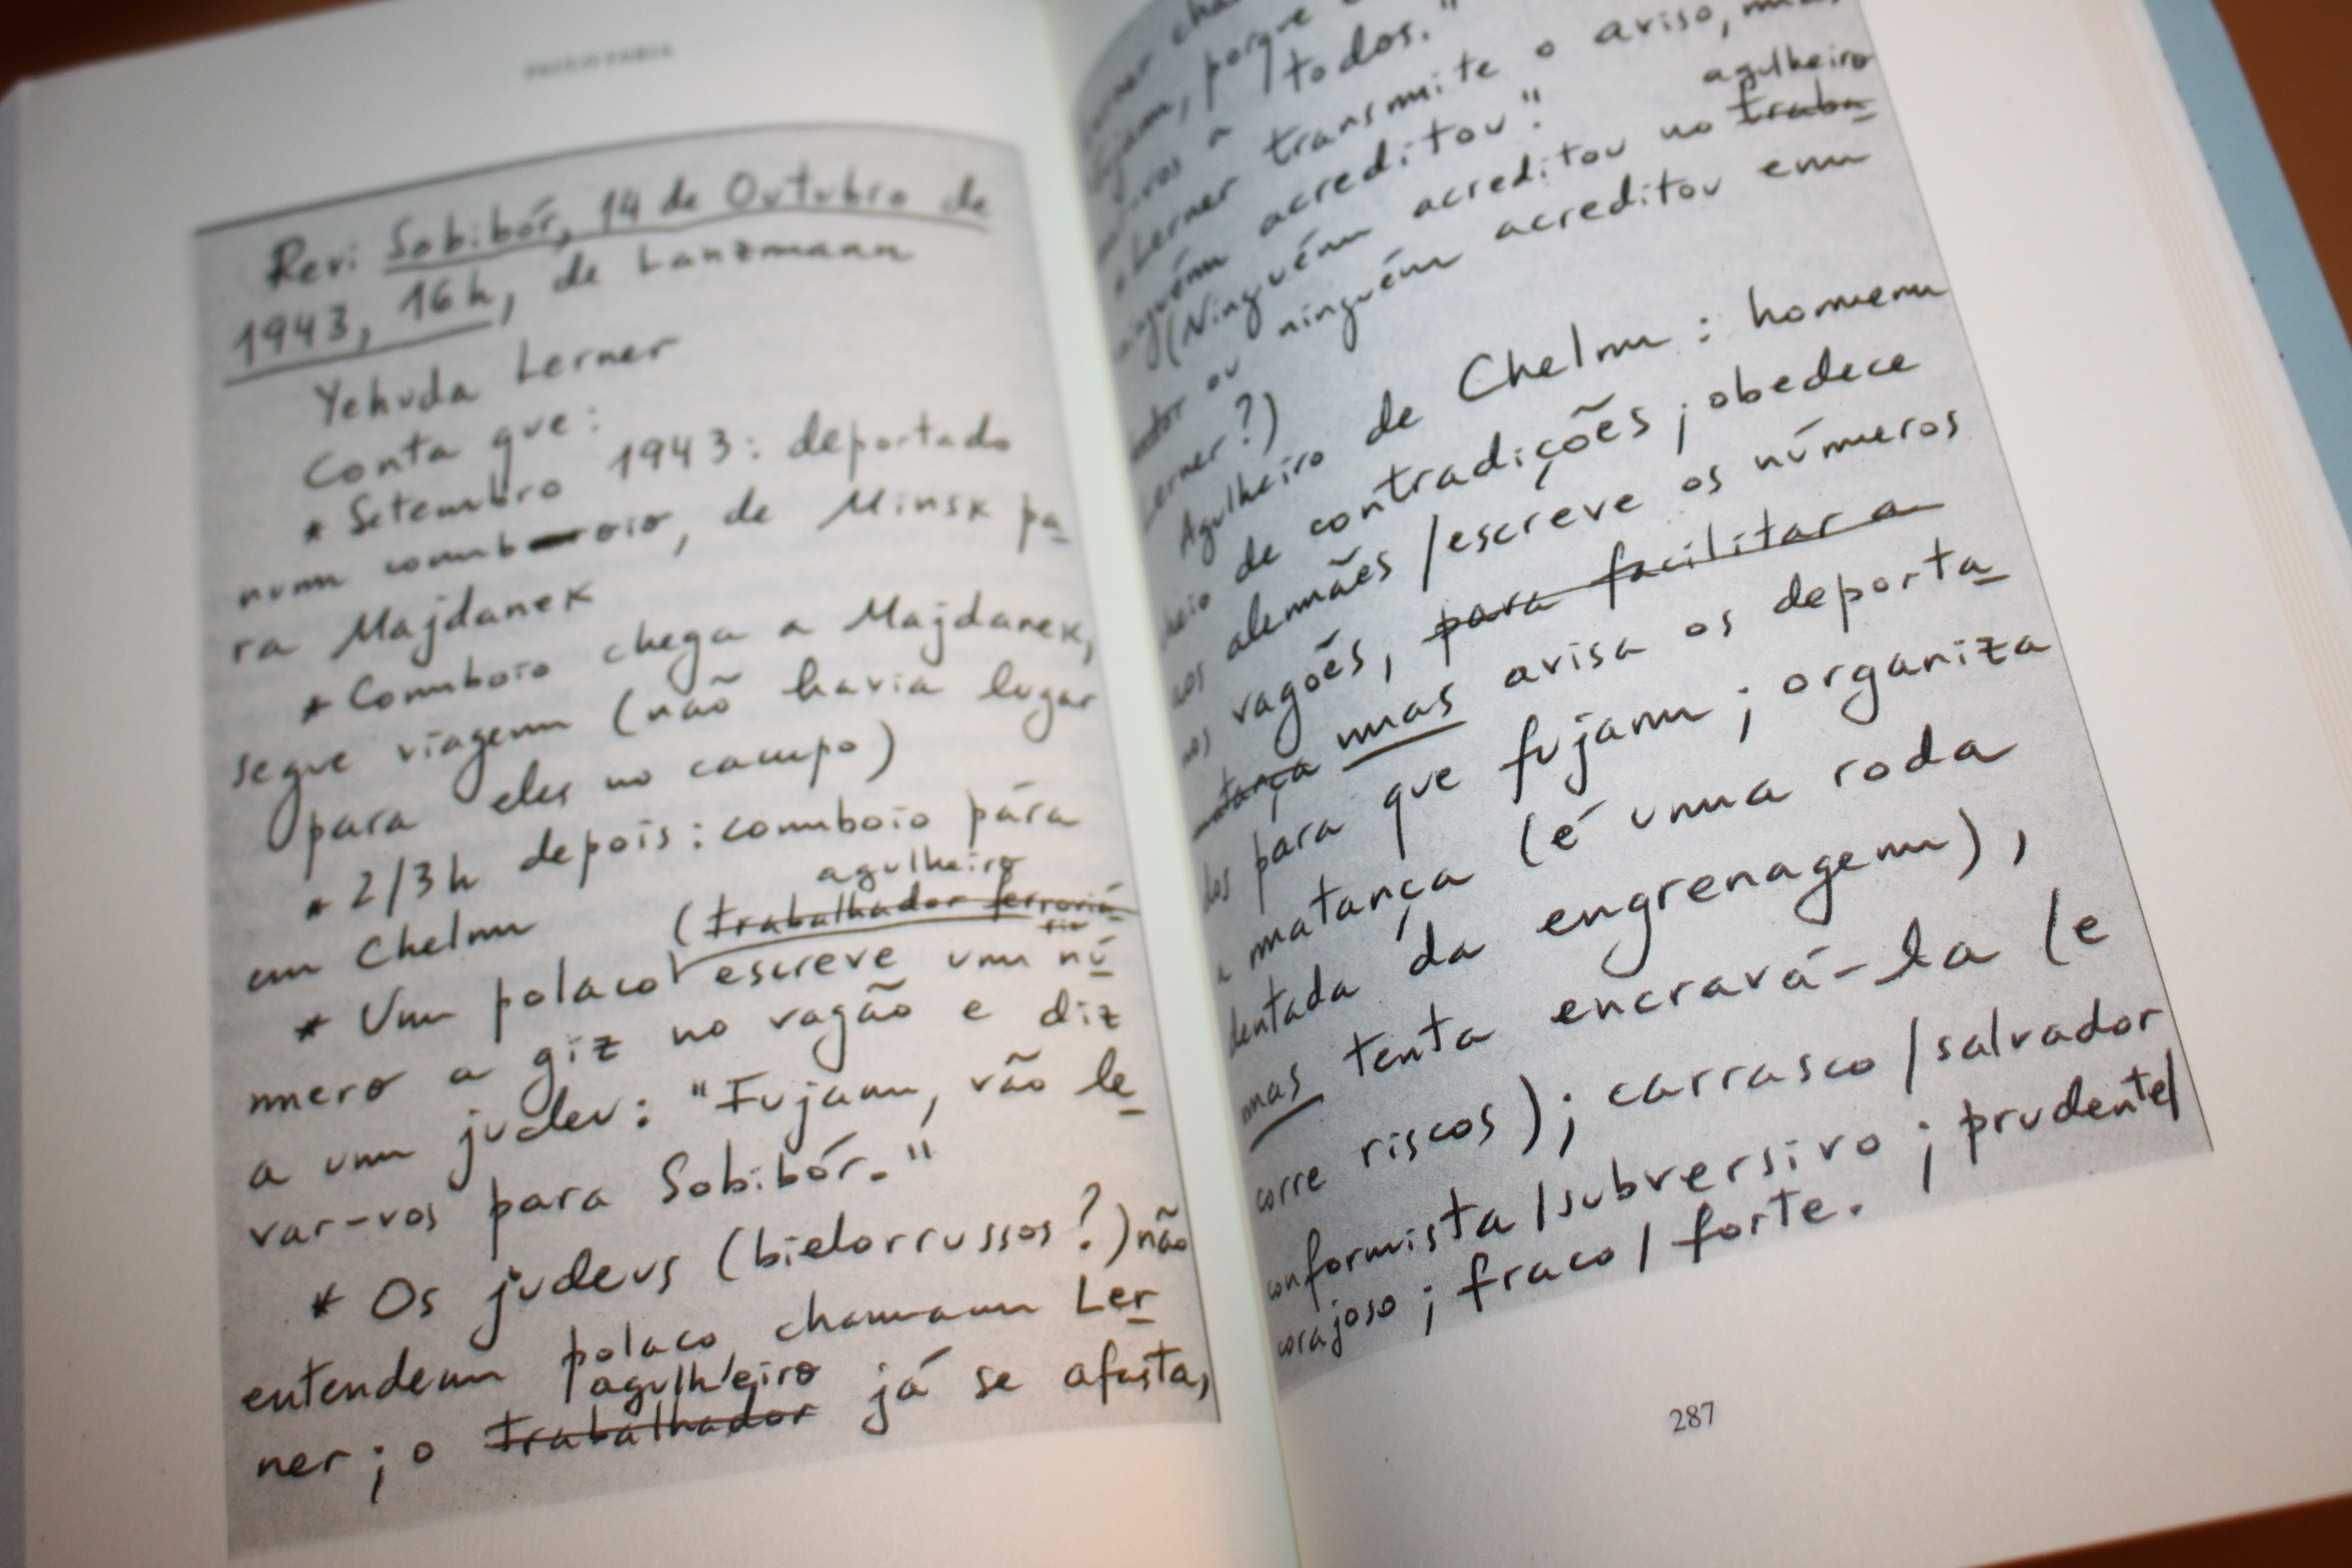 PAULO FARIA
Revi Sobibór, 14 de Outubro de
1943, 16h, de Lanzmann
Yehuda Lerner
Conta que:
* Setembro 1943: deportado
num comboio, de Minsk pa-
ra Majdanek
* Comboio chega a Majdanek,
segue viagem (não havia lugar
para eles no campo)
* 2/3h depois: comboio pára
em Chelm
agulheiro
(trabalhador ferroviá-
rio
* Um polaco escreve um nú-
mero a giz no vagão e diz
a um judeu: "Fujam, vão le-
var-vos para Sobibór."
* Os judeus (bielorrussos?) não
entendem polaco, chamam Ler-
agulheiro
ner; o trabalhador já se afasta,
porque
todos."
transmite o aviso, mas,
acreditou."
agulheiro
(Ninguém acreditou no traba-
ou ninguém acreditou em
Lerner?)
Agulheiro de Chelm: homem
cheio de contradições; obedece
aos alemães / escreve os números
nos vagões, para facilitar a
matança mas avisa os deporta-
dos para que fujam; organiza
a matança (é uma roda
dentada da engrenagem),
mas tenta encravá-la (e
corre riscos); carrasco / salvador
conformista / subversivo; prudente /
corajoso; fraco / forte.
287